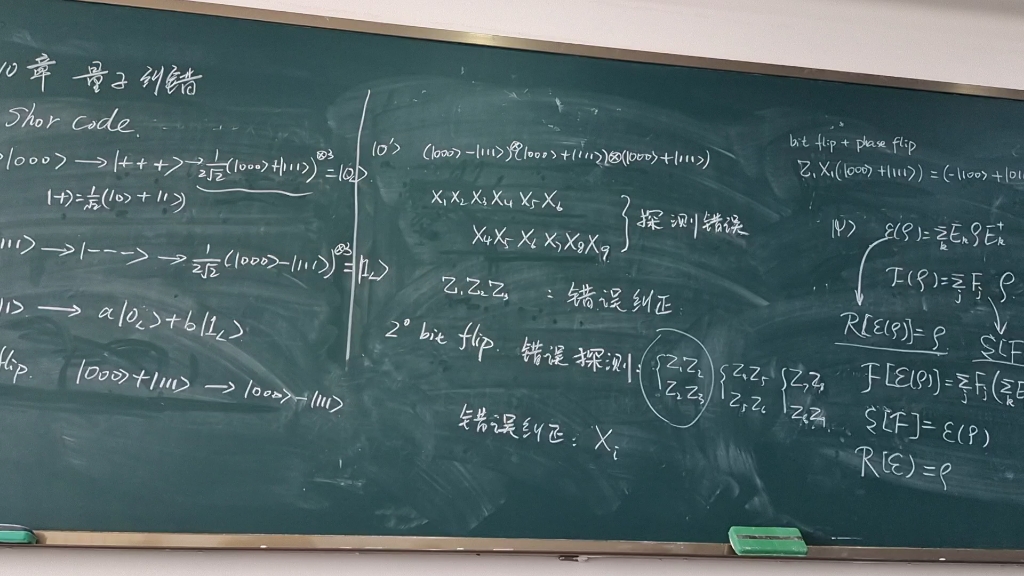 10章 量子纠错
Shor code.
|000> → |+++> → 1/2√2 (|000>+|111>)^⊗3 = |0_L>
|+>=1/√2(|0>+|1>)
111> → |---> → 1/2√2 (|000>-|111>)^⊗3 = |1_L>
|1> → a|0_L>+b|1_L>
flip. |000>+|111> → |000>-|111>
|0'> (|000>-|111>)⊗(|000>+|111>)⊗(|000>+|111>)
X₁X₂X₃X₄X₅X₆
X₄X₅X₆X₇X₈X₉
} 探测错误
Z₁Z₂Z₃ : 错误纠正
2° bit flip. 错误探测: {Z₁Z₂ Z₂Z₃ {Z₄Z₅ Z₅Z₆ {Z₇Z₈ Z₈Z₉
错误纠正: X_i
bit flip + phase flip
Z₁X₁(|000>+|111>) = (-|100>+|01
|ψ> ε(ρ)=Σ_k E_k ρ E_k^+
F(ρ)=Σ_j F_j ρ
R[ε(ρ)]=ρ ξ[F
F[ε(ρ)]=Σ_j F_j(Σ_k E
ξ[F]=ε(ρ)
R[ε)=ρ